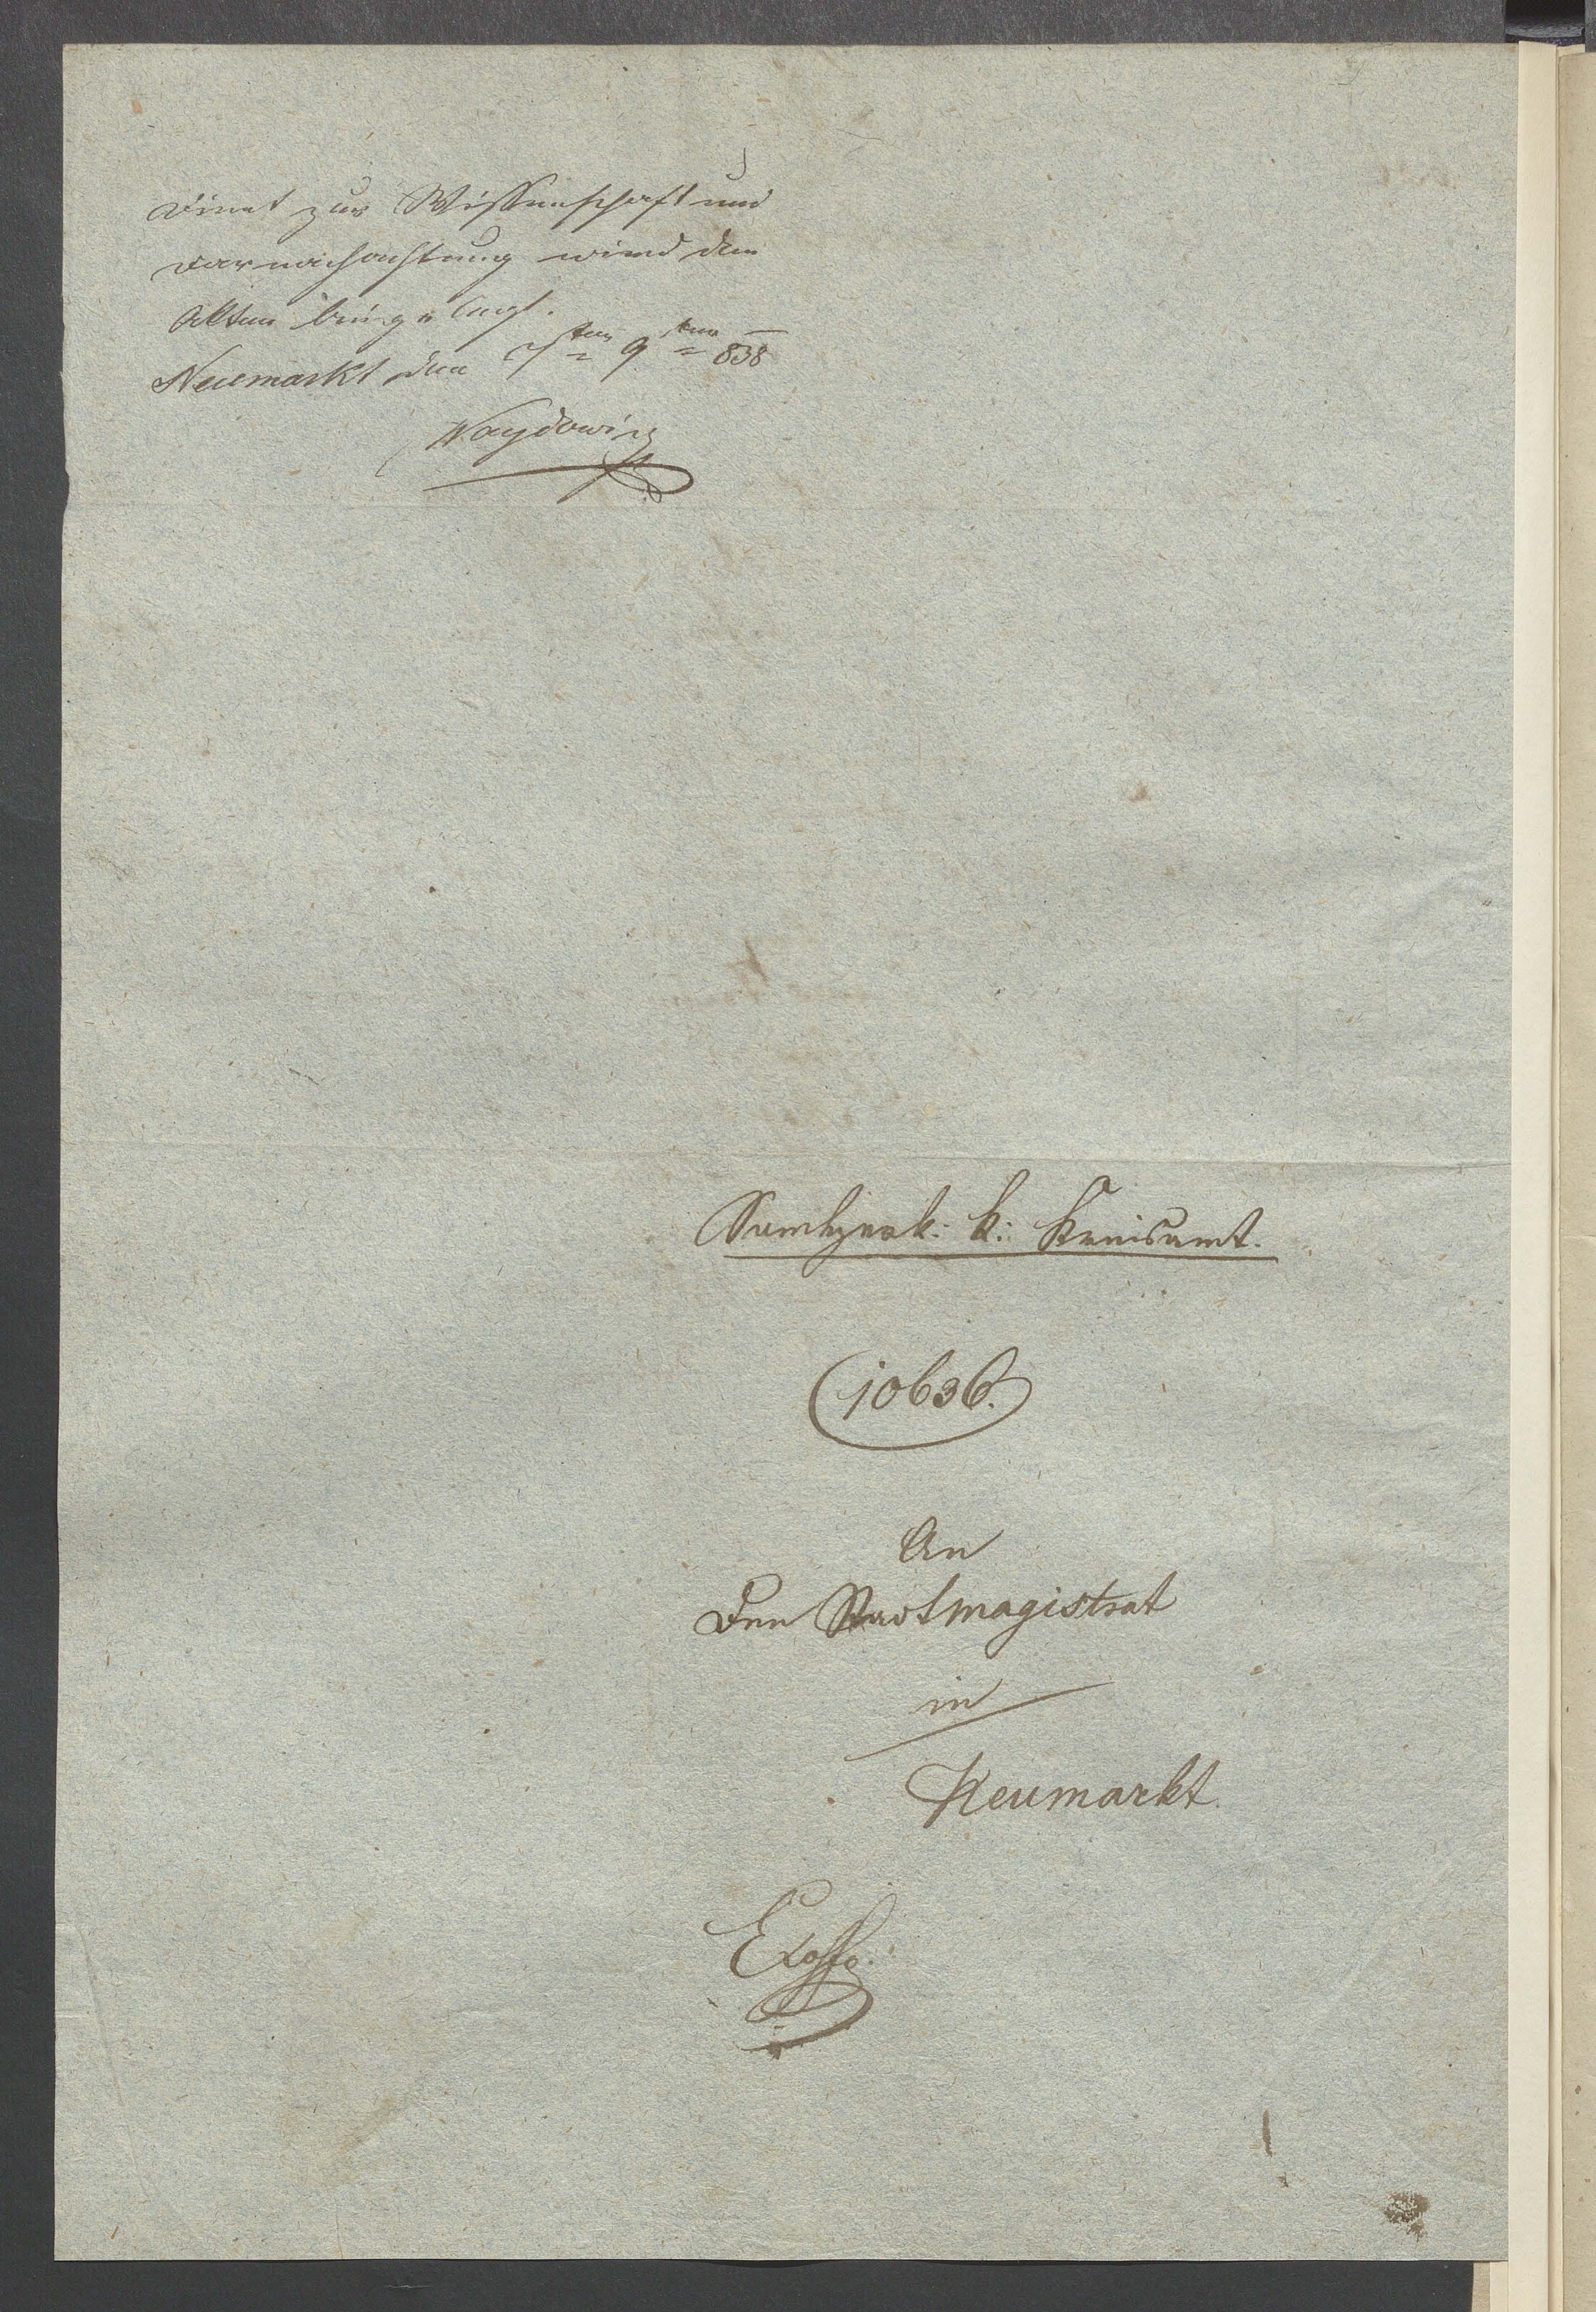 Dient zur Wissenschaft und
Darnachachtung wird den
Akten beigelegt.
Neumarkt den 7ten 9ber 838
Waydowicz
Sandezer k: k: Kreisamt.
10636.
An
Den Stadtmagistrat
in
Neumarkt.
Exoffo.